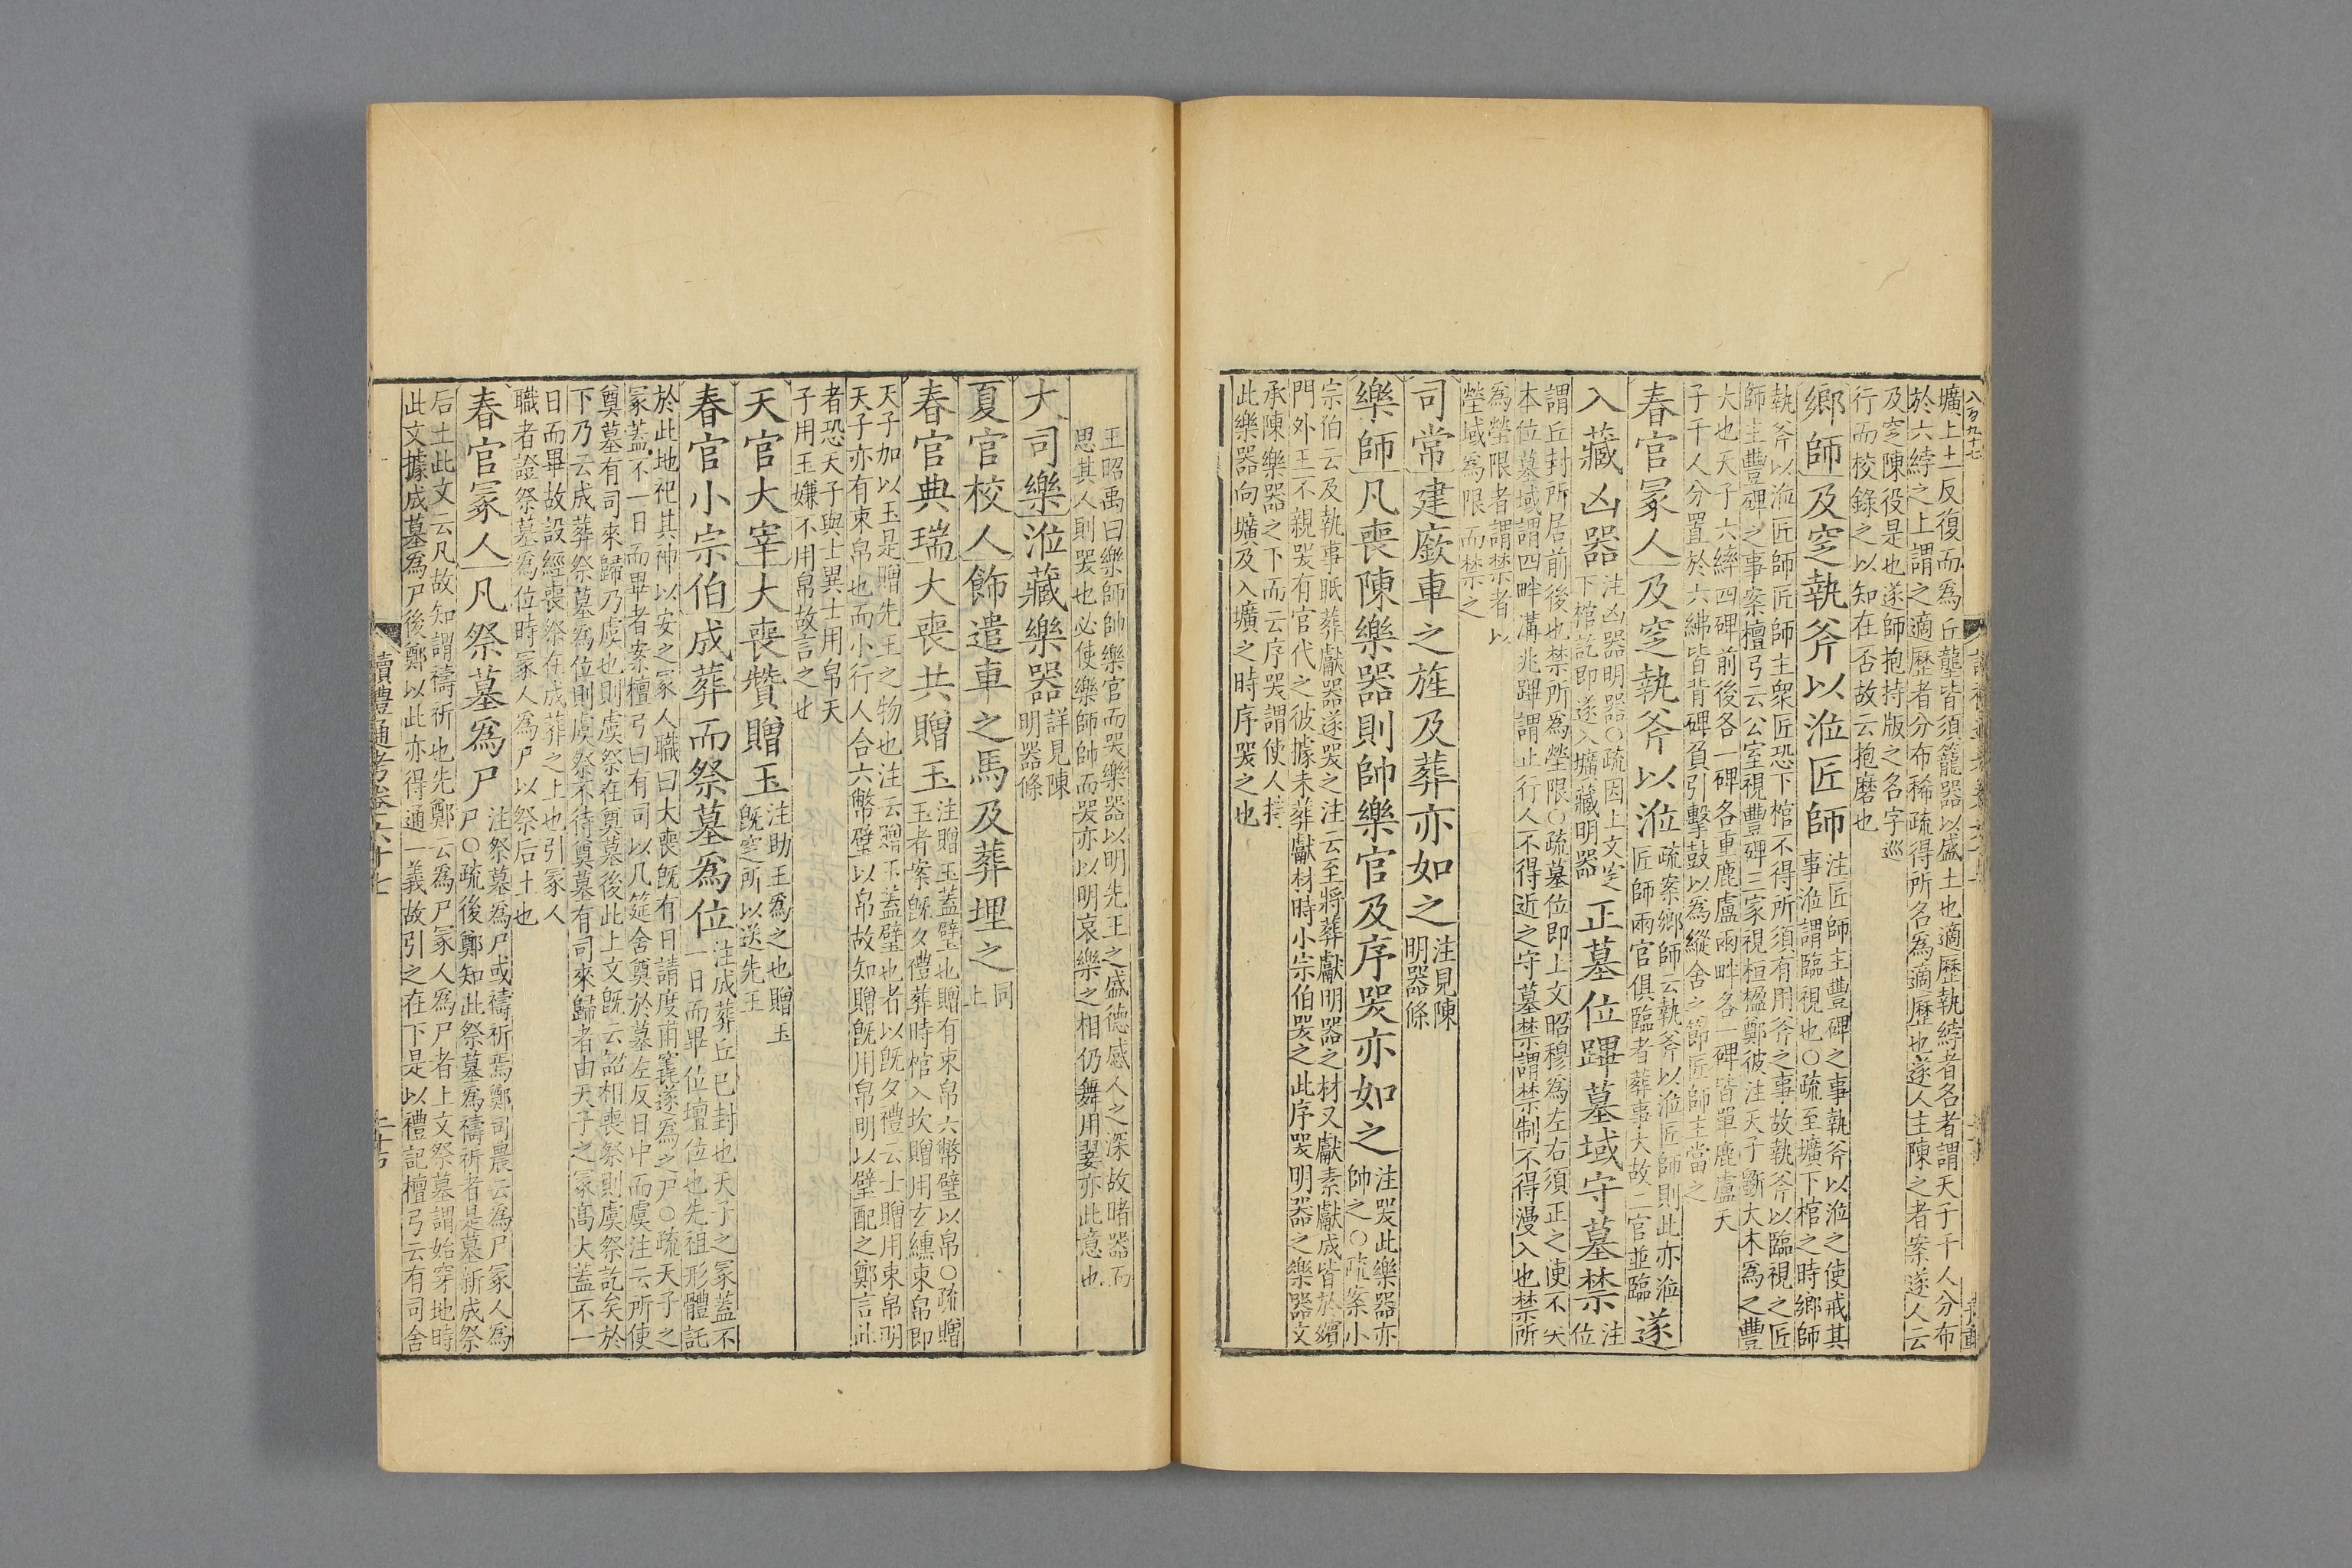 八百九十七
壙上土反復而爲丘壟皆須籠器以盛土也適歷執綍者名者謂天子千人分布
於六綍之上謂之適歷者分布稀疏得所名爲適歷也遂人主陳之者案遂人云
及窆陳役是也遂師抱持版之名字巡
行而校錄之以知在否故云抱磨也
鄉師及窆執斧以涖匠師
注匠師主豐碑之事執斧以涖之使戒其
事涖謂臨視也○疏至壙下棺之時鄉師
執斧以涖匠師匠師主衆匠恐下棺不得所須有用斧之事故執斧以臨視之匠
師主豐碑之事案檀弓云公室視豐碑三家視桓楹鄭彼注天子斲大木爲之豐
大也天子六繂四碑前後各一碑各重鹿盧兩畔各一碑皆單鹿盧天
子千人分置於六紼皆背碑負引擊鼓以爲縱舍之節匠師主當之
春官冢人及窆執斧以涖
疏案鄉師云執斧以涖匠師則此亦涖
匠師兩官俱臨者葬事大故二官並臨
遂
入藏凶器
注凶器明器○疏因上文窆
下棺訖即遂入壙藏明器
正墓位蹕墓域守墓禁
注
位
謂丘封所居前後也禁所爲塋限○疏墓位即上文昭穆爲左右須正之使不失
本位墓域謂四畔溝兆蹕謂止行人不得近之守墓禁謂禁制不得漫入也禁所
爲塋限者謂禁者以
塋域爲限而禁之
司常建廞車之旌及葬亦如之
注見陳
明器條
樂師凡喪陳樂器則帥樂官及序哭亦如之
注哭此樂器亦
帥之○疏案小
宗伯云及執事眂葬獻器遂哭之注云至將葬獻明器之材又獻素獻成皆於殯
門外王不親哭有官代之彼據未葬獻材時小宗伯哭之此序哭明器之樂器文
承陳樂器之下而云序哭謂使人持
此樂器向壙及入壙之時序哭之也
王昭禹曰樂師帥樂官而哭樂器以明先王之盛德感人之深故睹器而
思其人則哭也必使樂師帥而哭亦以明哀樂之相仍舞用翣亦此意也
大司樂涖藏樂器
詳見陳
明器條
夏官校人飾遣車之馬及葬埋之
同
上
春官典瑞大喪共贈玉
注贈玉蓋璧也贈有束帛六幣璧以帛○疏贈
玉者案旣夕禮葬時棺入坎贈用玄纁束帛即
天子加以玉是贈先王之物也注云贈玉蓋璧也者以旣夕禮云士贈用束帛明
天子亦有束帛也而小行人合六幣璧以帛故知贈旣用帛明以璧配之鄭言此
者恐天子與士異士用帛天
子用玉嫌不用帛故言之也
天官大宰大喪贊贈玉
注助王爲之也贈玉
旣窆所以送先王
春官小宗伯成葬而祭墓爲位
注成葬丘已封也天子之冢蓋不
一日而畢位壇位也先祖形體託
於此地祀其神以安之冢人職曰大喪旣有日請度甫竁遂爲之尸○疏天子之
冢蓋不一日而畢者案檀弓曰有司以几筵舍奠於墓左反日中而虞注云所使
奠墓有司來歸乃虞也則虞祭在奠墓後此上文旣云詔相喪祭則虞祭訖矣於
下乃云成葬祭墓爲位則虞祭不待奠墓有司來歸者由天子之冢高大蓋不一
日而畢故設經喪祭在成葬之上也引冢人
職者證祭墓爲位時冢人爲尸以祭后土也
春官冢人凡祭墓爲尸
注祭墓爲尸或禱祈焉鄭司農云爲尸冢人爲
尸○疏後鄭知此祭墓爲禱祈者是墓新成祭
后土此文云凡故知謂禱祈也先鄭云爲尸冢人爲尸者上文祭墓謂始穿地時
此文據成墓爲尸後鄭以此亦得通一義故引之在下是以禮記檀弓云有司舍
讀禮通考卷六十七